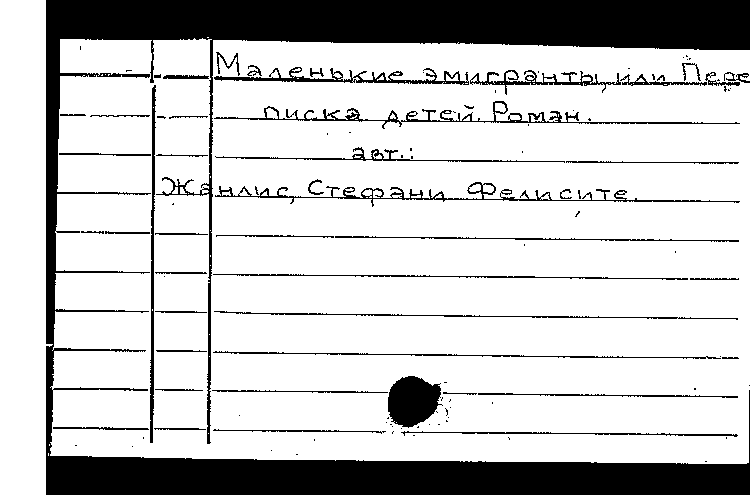 Маленькие эмигранты, или Пере
писка детей. Роман.
авт.:
Жанлис, Стефани Фелисите.